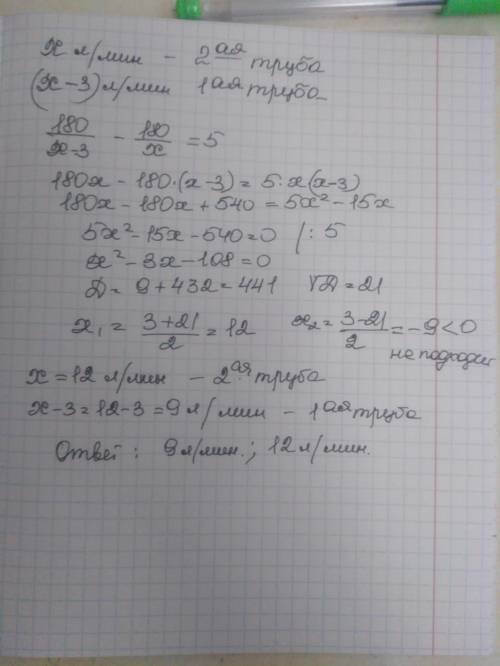 x л/мин - 2ая труба
(x-3) л/мин 1ая труба
180/(x-3) - 180/x = 5
180x - 180·(x-3) = 5·x(x-3)
180x - 180x + 540 = 5x² - 15x
5x² - 15x - 540 = 0 /: 5
x² - 3x - 108 = 0
D = 9 + 432 = 441 √D = 21
x₁ = (3+21)/2 = 12 x₂ = (3-21)/2 = -9 < 0
не подходит
x = 12 л/мин - 2ая труба
x-3 = 12-3 = 9 л/мин - 1ая труба
Ответ: 9 л/мин.; 12 л/мин.